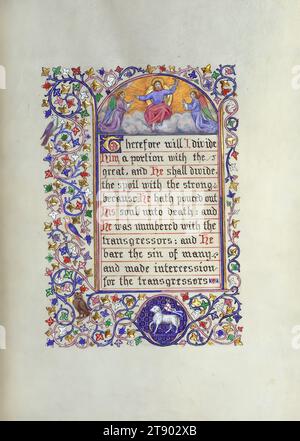 Therefore will I divide
Him a portion with the
great, and He shall divide
the spoil with the strong
because He hath poured out
His soul unto death; and
He was numberd with the
transgressors; and He
bare the sin of many,
and made intercession
for the transgressors
alamy
Image ID: 2T902XB
www.alamy.com